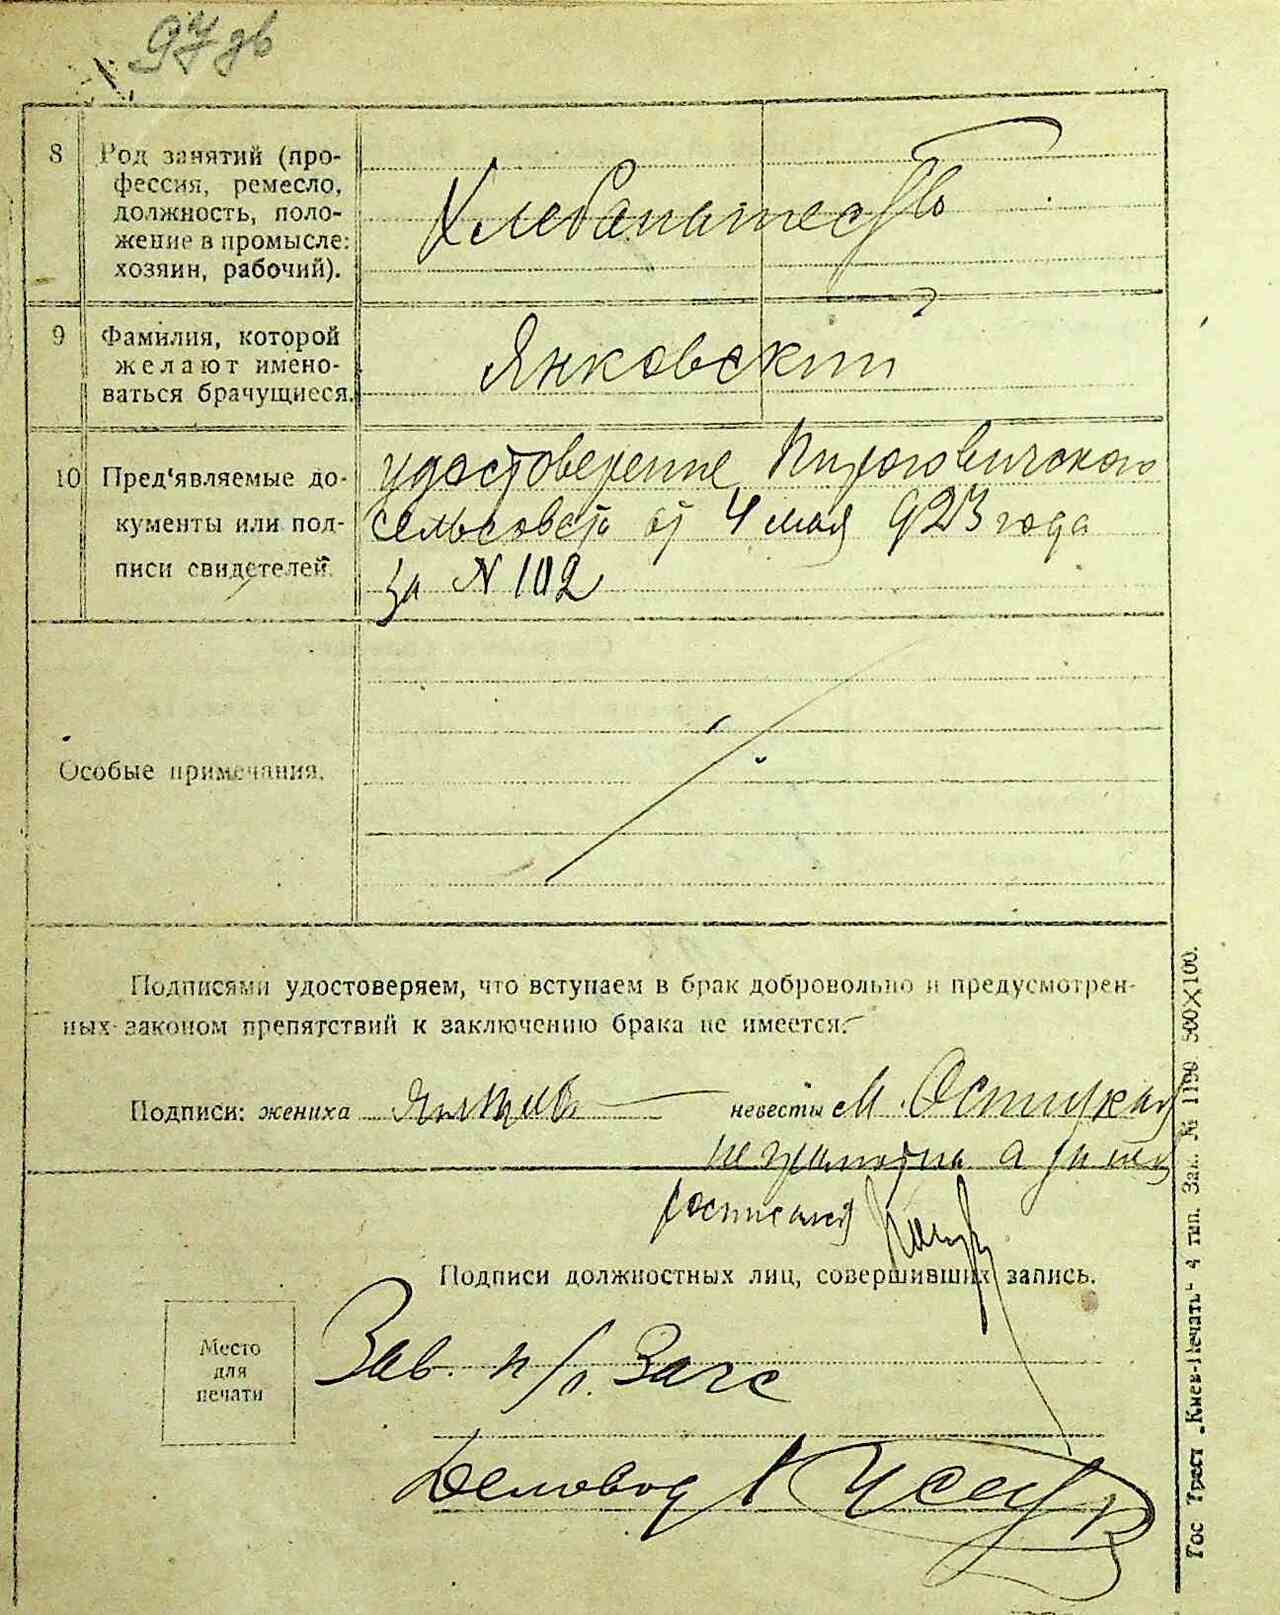 8 Род занятий (про-
фессия, ремесло,
должность, поло-
жение в промысле:
хозяин, рабочий).
Хлебапашество
9 Фамилия, которой
желают имено-
ваться брачущиеся.
Янковский
10 Пред'являемые до-
кументы или под-
писи свидетелей.
удостоверение Пироговичского
сельсовета от 4 мая 923 года
за N 102
Особые примечания.
Подписями удостоверяем, что вступаем в брак добровольно и предусмотрен-
ных законом препятствий к заключению брака не имеется.
Подписи: жениха невесты М. Остицкая
не грамотна а за нея
росписался
Подписи должностных лиц, совершивших запись.
Место
для
печати
Зав. п/о. Загс
Деловод
Гос Трест „Киев-Печать“ 4 тип. Зак. № 1190 500×100.